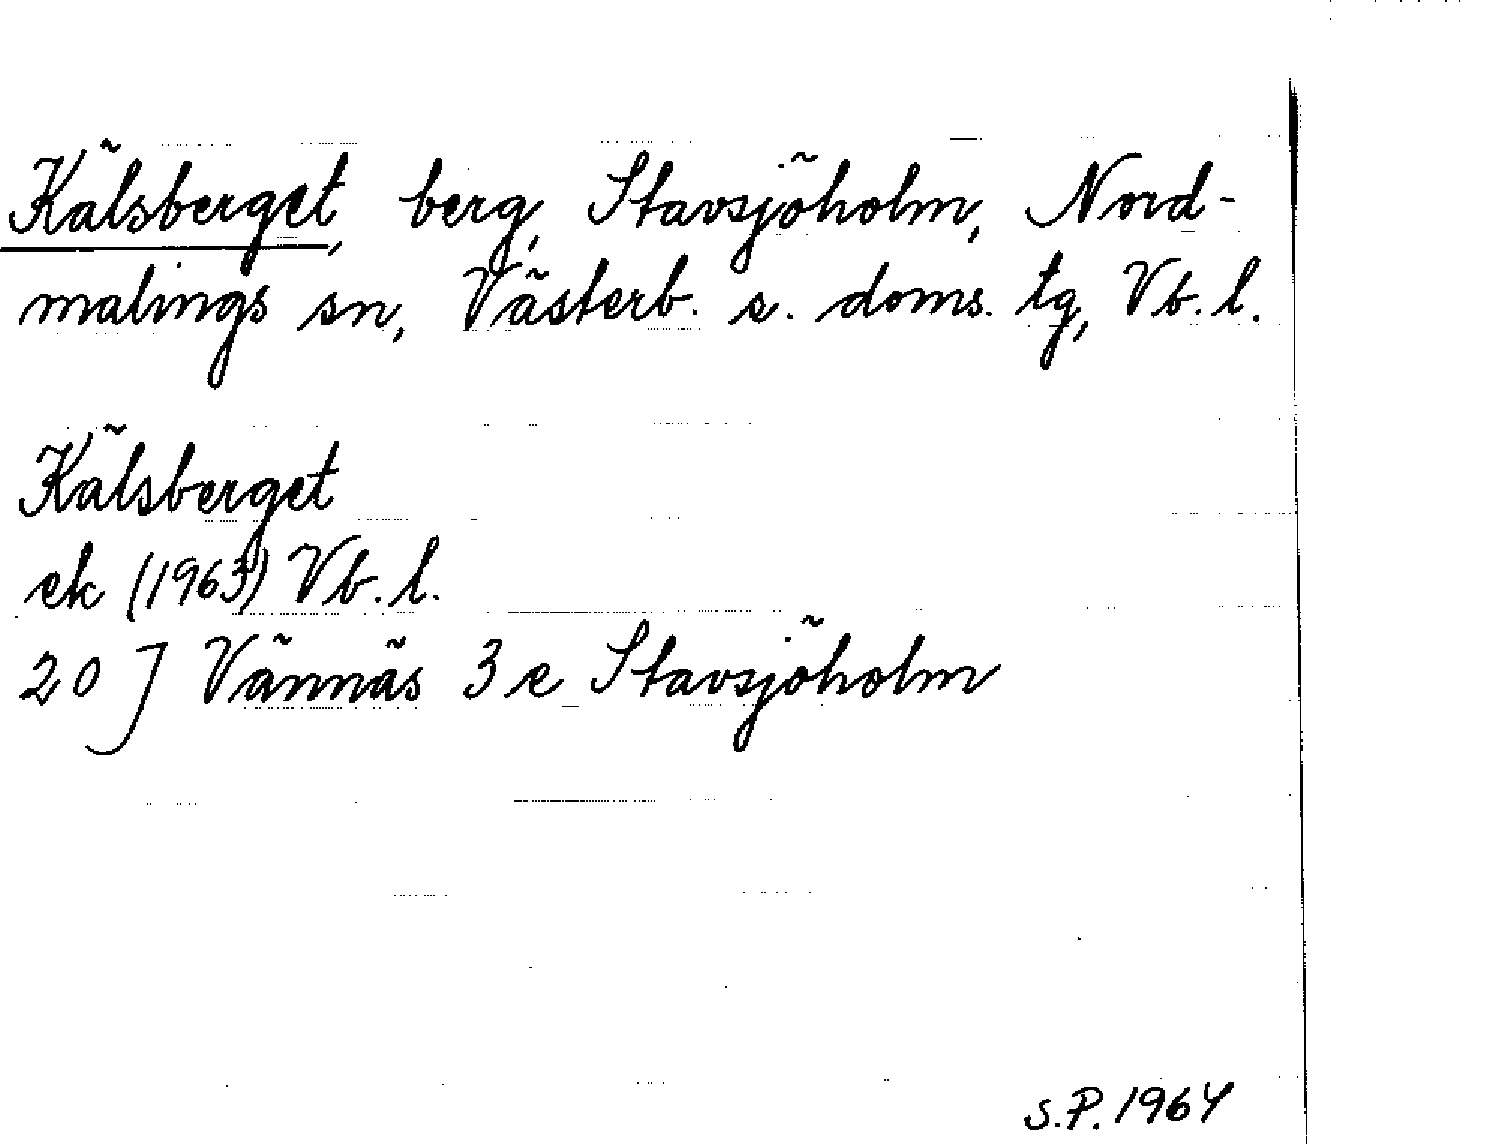 Kälsberget, berg, Stavsjöholm, Nord-
malings sn, Västerb. s. doms. tg, Vb. l.
Kälsberget
ek (1963) Vb. l.
20 J Vännäs 3 e Stavsjöholm
S.P. 1964